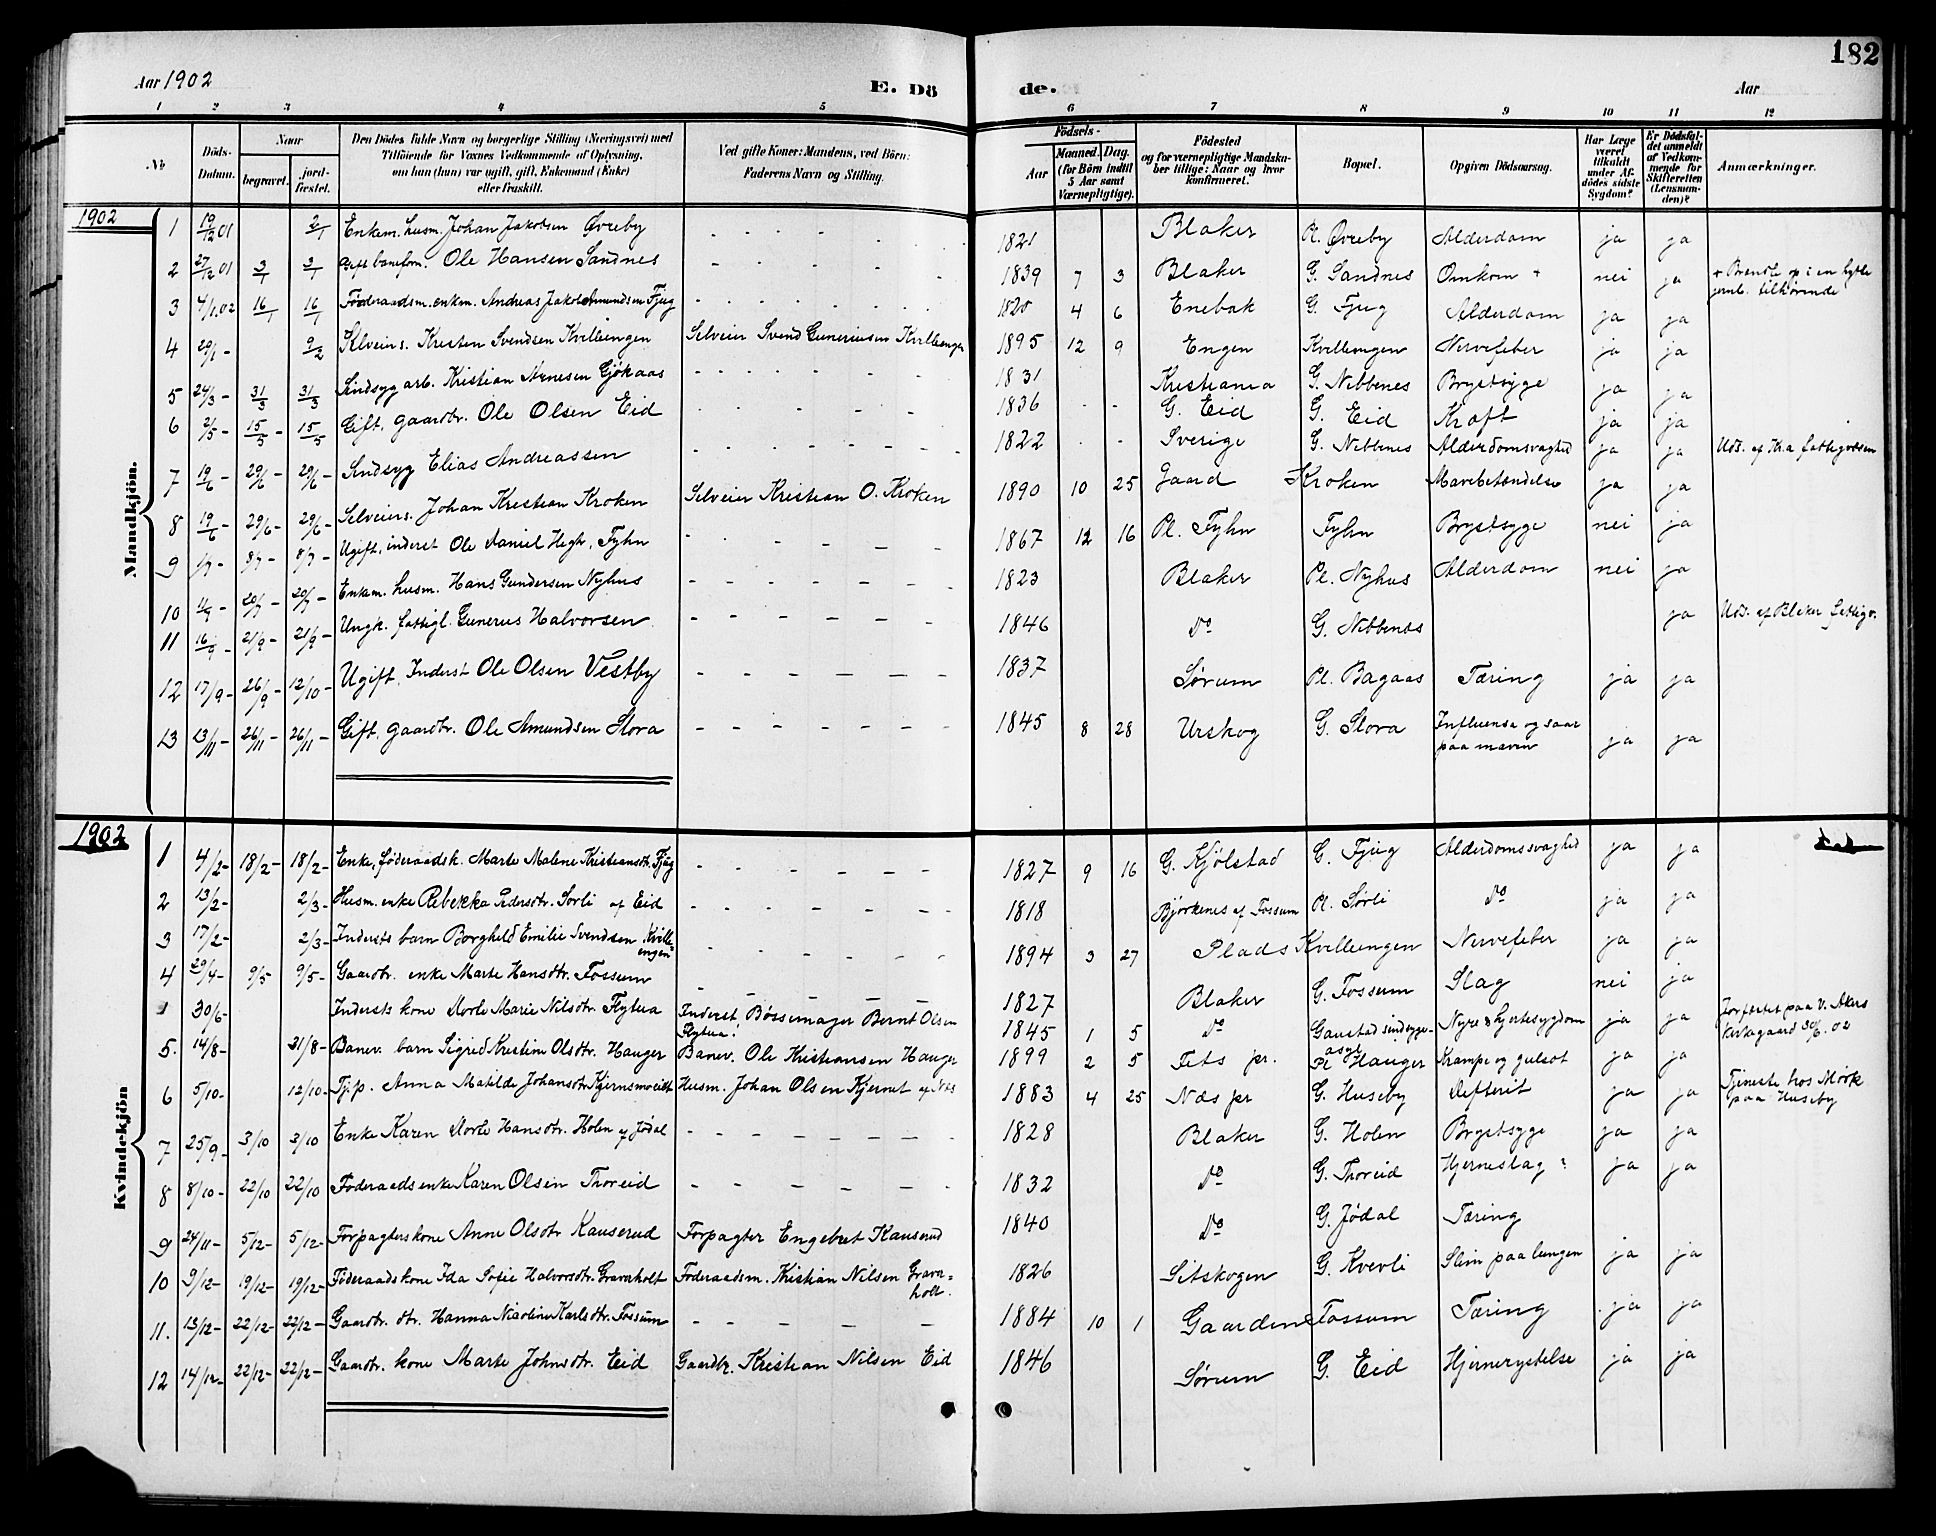 182
Aar 1902
E. Dö
de.
Aar
1 2 3 4 5 6 7 8 9 10 11 12
No
Döds-Datum.
Naar
begravet.
jord-fæstet.
Den Dödes fulde Navn og borgerlige Stilling (Næringsvei) med
Tilföiende for Voxnes Vedkommende af Oplysning,
om han (hun) var ugift, gift, Enkemand (Enke)
eller fraskilt.
Ved gifte Koner: Mandens, ved Börn:
Faderens Navn og Stilling.
Födsels-
Aar
Maaned. Dag.
(for Börn indtil
5 Aar samt
Værnepligtige).
Födested
og for værnepligtige Mandska-
ber tillige: Naar og hvor
konfirmeret.
Bopæl.
Opgiven Dödsaarsag.
Har Læge
været
tilkaldt
under Af-
dödes sidste
Sygdom?
Er Dödsfal-
det anmeldt
af Vedkom-
mende for
Skifteretten
(Lensman-
den)?
Anmærkninger.
1902
Mandkjön.
1 19/12 01 2/1 Enkem. husm. Johan Jakobsen Øvreby 1821 Blaker Pl. Øvreby Alderdom ja ja
2 27/12 01 3/1 3/1 Gift baneform. Ole Hansen Sandnes 1839 7 3 Blaker G. Sandnes Omkom + nei ja + Brændte op i en hytte
jernb. tilhørende
3 4/1 02 16/1 16/1 Føderaadsm. enkm. Andreas Jakob Amundsen Fjug 1828 4 6 Enebak G. Fjug Alderdom ja ja
4 29/1 - 9/2 Selveiers. Kristen Svendsen Kvillungen Selveier Svend Guneriusen Kvillungen 1895 12 9 Engen Kvillungen Nervefeber ja ja
5 24/3 - 31/3 31/3 Sindsyg arb. Kristian Arnesen Gjøkaas 1831 Kristiania G. Nebbenes Brystsyge ja ja
6 2/5 - 15/5 15/5 Gift, gaardbr. Ole Olsen Eid 1836 G. Eid G. Eid Kræft ja ja
7 19/6 - 29/6 - 29/6 - Sindsyg Elias Andreassen 1822 Sverige G. Nebbenes Alderdomsvaghed ja ja Uds. af Kr.a fattigvæsen
8 19/6 - 29/6 - 29/6 - Selveiers. Johan Kristian Kroken Selveier Kristian O. Kroken 1890 10 25 Gaard Kroken Mavebetændelse ja ja
9 1/7 - 8/7 - 8/7 - Ugift, inderst Ole Daniel Hegh, Fyhn 1867 12 16 Pl. Fyhn Fyhn Brystsyge nei ja
10 - 20/7 - 20/7 - Enkem. husm. Hans Gundersen Nyhus 1823 Blaker Pl. Nyhus Alderdom nei ja
11 16/9 - 21/9 - 21/9 - Ungk. fattigl. Gunerus Halvorsen 1846 Do G. Nebbenes ja Uds. af Blaker fattigv.
12 17/9 - 26/9 12/10 - Ugift, Inderst Ole Olsen Vestby 1837 Sørum Pl. Bagaas Tæring ja ja
13 13/11 - 26/11 - 26/11 - Gift, gaardbr. Ole Amundsen Slora 1845 8 28 Urskog G. Slora Influensa og saar
paa maven ja ja
1902
Kvindekjön
1 4/2 - 18/2 - 18/2 - Enke, føderaadsk. Marte Malene Kristiansdtr. Fjug 1827 9 16 G. Kjølstad G. Fjug Alderdomssvaghed ja ja
2 13/2 - 2/3 - Husm. enke Rebekka Pedersdtr. Sørli af Eid 1818 Bjørkenes af Fossum Pl. Sørli Do ja ja
3 17/2 - 2/3 -Indersts barn Borghild Emilie Svendsen Kvill-
ungen 1894 3 27 Plads Kvillungen Nervefeber ja ja
4 29/4 - 9/5 9/5 - Gaardbr. enke Marte Hansdtr. Fossum 1827 Blaker G. Fossum Slag nei ja
30/6 - Indersts kone Dorte Marie Nilsdtr. Flytua Inderst, Bøssemager Bernt Olsen
Flytua. 1845 1 5 Do Gaustad sindssyge-
asyl Nyre & hjertesygdom ja ja Jordfæstet paa V. Akers
kirkegaard 30/6. 02
5. 14/8 - 31/8 - Banev. barn Sigrid Kristine Olsdtr. Hauger Banev. Ole Kristiansen Hauger 1899 2 5 Fets pr. Pl. Hauger Krampe og gulsot ja ja
6 5/10 - 12/10 - Tjp. Anna Matilde Johansdtr. Kjernsmoeidt Husm. Johan Olsen Kjernet af Næs 1883 4 25 Næs pr G. Huseby Defterit ja ja Tjeneste hos Mørk
paa Huseby
7 25/9 - 3/10 3/10 Enke Karen Dorte Hansdtr. Holen af Jødal 1828 Blaker G. Holen Brystsyge ja ja
8 8/10 - 22/10 22/10 Føderaadsenke Karen Olsen Thoreid 1832 Do G. Thoreid Hjerneslag ja ja
9 24/11 - 5/12 - 5/12 - Forpagterskone Anne Olsdtr Kauserud Forpagter Engebret Kauserud 1840 Do G. Jødal Tæring
10 9/12 - 19/12 - 19/12 - Føderaadskone Ida Sofie Halvorsdtr. Gravaholt Føderaadsm. Kristian Nilsen Grava-
holt. 1826 Setskogen G. Kverli Slim paa lungen ja ja
11. 13/12 - 22/12 - 22/12 - Gaardbr. dtr. Hanna Nicoline Karlsdtr. Fossum 1884 10 1 Gaarden Fossum Tæring ja ja
12 14/12 - 22/12 - 22/12 - Gaardbr. kone Marte Johnsdtr. Eid Gaardbr. Kristian Nilsen Eid 1846 Sørum G. Eid Hjernerystelse ja ja